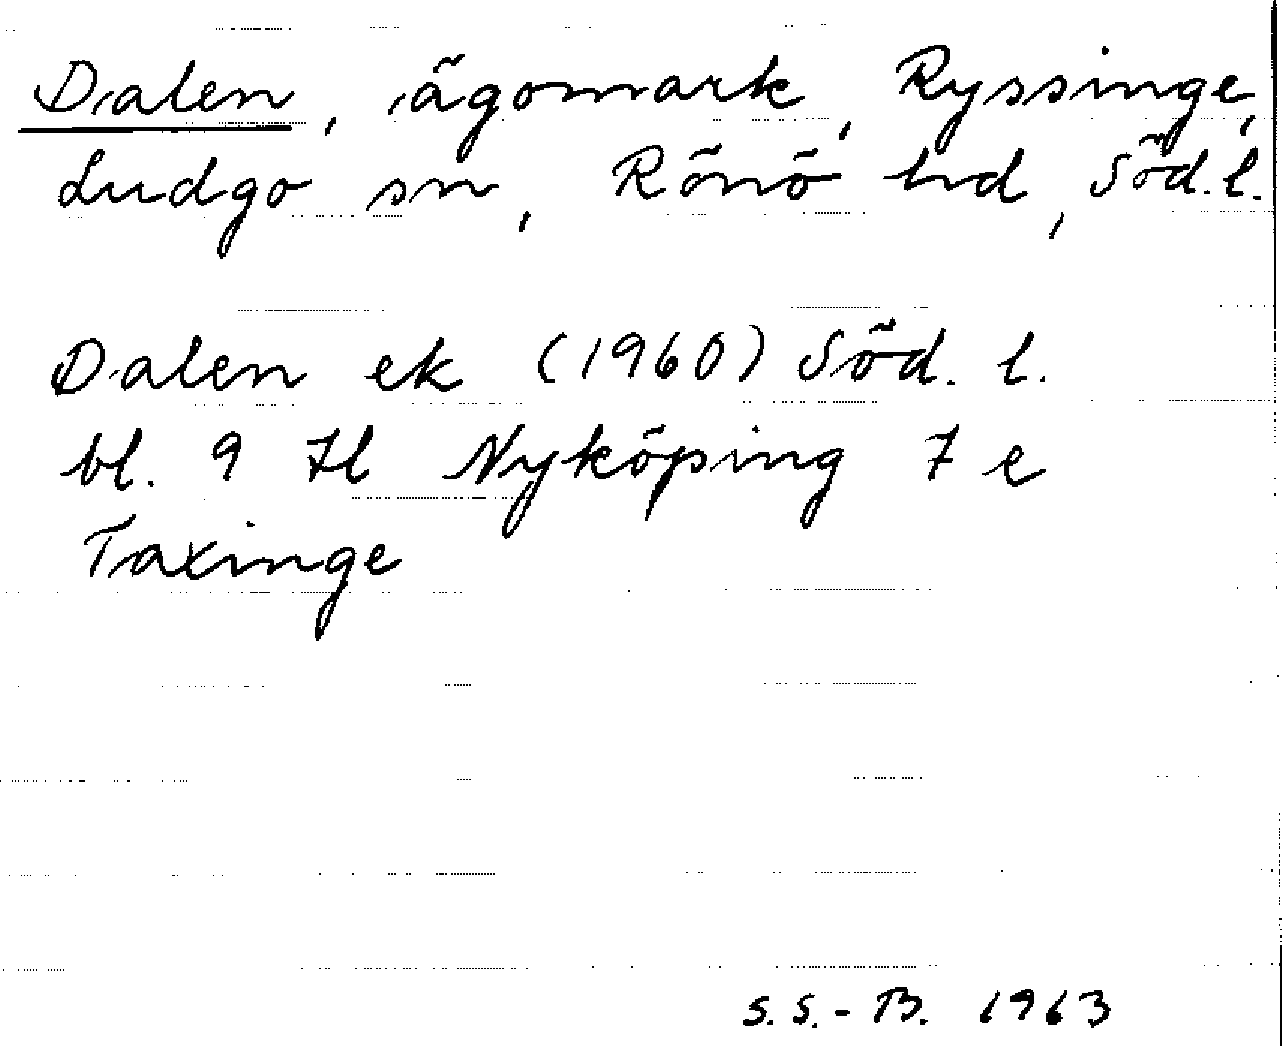 Dalen, ägomark, Ryssinge,
Ludgo sn, Rönö hd, Söd. l.
Dalen ek (1960) Söd. l.
bl. 9 H Nyköping 7 e
Taxinge
S.S.-B. 1963